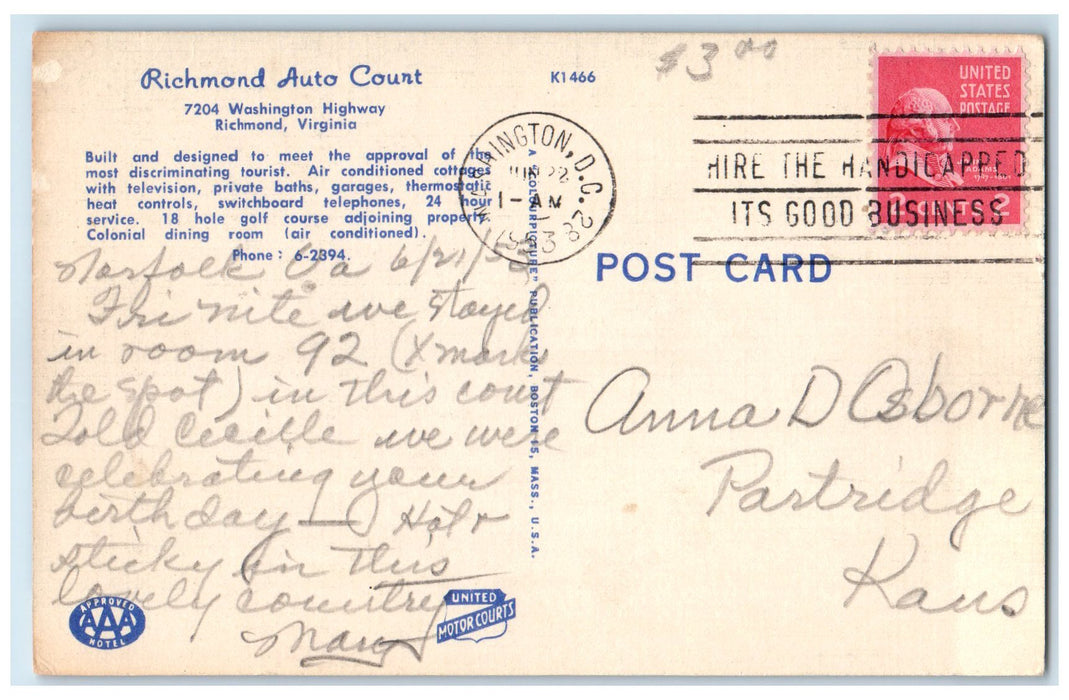 Richmond Auto Court
7204 Washington Highway
Richmond, Virginia
Built and designed to meet the approval of the
most discriminating tourist. Air conditioned cottages
with television, private baths, garages, thermostatic
heat controls, switchboard telephones, 24 hour
service. 18 hole golf course adjoining property.
Colonial dining room (air conditioned).
Phone: 6-2394.
Norfolk Va 6/21/53
Fri nite we stayed
in room 92 (X marks
the spot) in this court
Told Cecille we were
celebrating your
birthday — Hot &
sticky in this
lovely country
Mary
APPROVED
AAA
HOTEL
UNITED
MOTOR COURTS
K1466
A "COLOURPICTURE" PUBLICATION, BOSTON 15, MASS., U.S.A.
$3 00
WASHINGTON, D.C.
JUN 22
1 - AM
1953
HIRE THE HANDICAPPED
ITS GOOD BUSINESS
UNITED
STATES
POSTAGE
ADAMS
2 CENTS 2
POST CARD
Anna D Osborne
Partridge
Kans